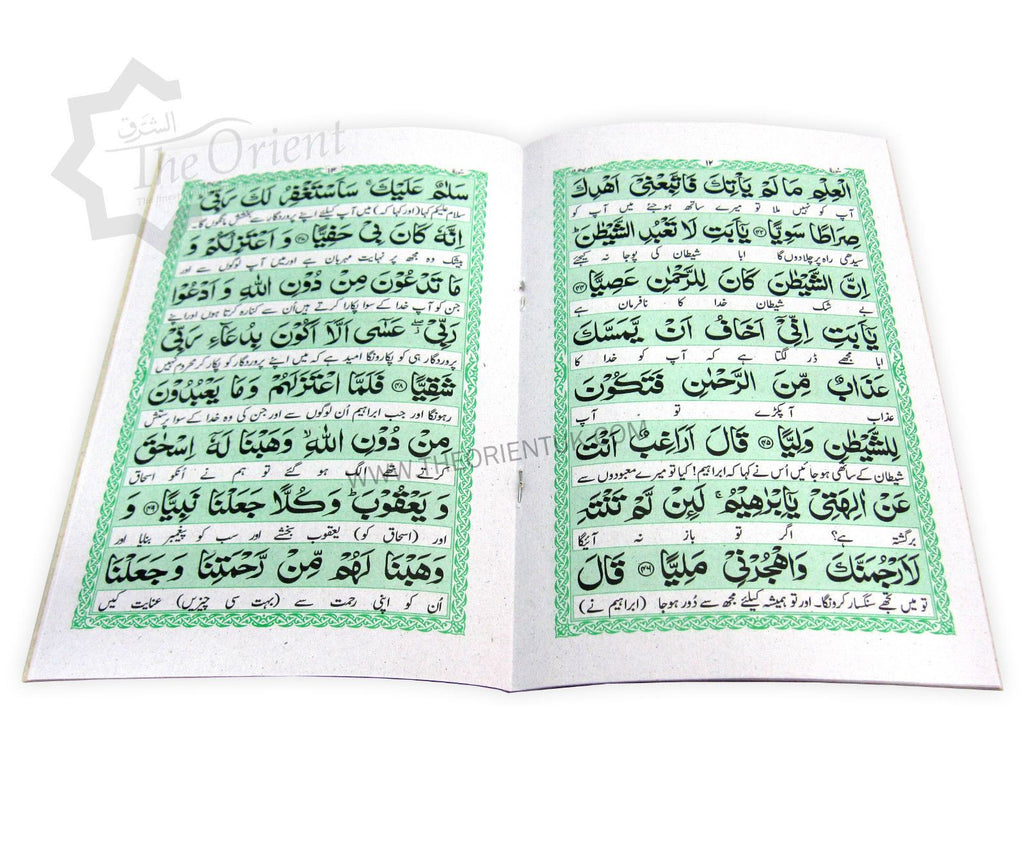 الشرق
The Orient
۱۲
الْعِلْمِ مَا لَمْ يَأْتِكَ فَاتَّبِعْنِيْٓ اَهْدِكَ
آپ کو نہیں ملا تو میرے ساتھ ہوجئیے میں آپ کو
صِرَاطًا سَوِيًّا ﴿۴۳﴾ يٰٓاَبَتِ لَا تَعْبُدِ الشَّيْطٰنَ ؕ
سیدھی راہ پر چلادوں گا ابا شیطان کی پوجا نہ کیجئے
اِنَّ الشَّيْطٰنَ كَانَ لِلرَّحْمٰنِ عَصِيًّا ﴿۴۴﴾
بے شک شیطان خدا کا نافرمان ہے
يٰٓاَبَتِ اِنِّيْٓ اَخَافُ اَنْ يَّمَسَّكَ
ابا مجھے ڈر لگتا ہے کہ آپ کو خدا کا
عَذَابٌ مِّنَ الرَّحْمٰنِ فَتَكُوْنَ
عذاب آپکڑے تو آپ
لِلشَّيْطٰنِ وَلِيًّا ﴿۴۵﴾ قَالَ اَرَاغِبٌ اَنْتَ
شیطان کے ساتھی ہوجائیں اُس نے کہا کہ ابراہیم! کیا تو میرے معبودوں سے
عَنْ اٰلِهَتِيْ يٰٓاِبْرٰهِيْمُ ۚ لَئِنْ لَّمْ تَنْتَهِ
برگشتہ ہے؟ اگر تو باز نہ آئیگا
لَاَرْجُمَنَّكَ وَاهْجُرْنِيْ مَلِيًّا ﴿۴۶﴾ قَالَ
تو میں تجھے سنگسار کرونگا۔ اور تو ہمیشہ کیلئے مجھ سے دُور ہوجا (ابراہیم نے)
۱۳
سَلٰمٌ عَلَيْكَ ۚ سَاَسْتَغْفِرُ لَكَ رَبِّيْ ؕ
سلام علیکم کہا (اور کہا کہ) میں آپ کیلئے اپنے پروردگار سے بخشش مانگوں گا۔
اِنَّهٗ كَانَ بِيْ حَفِيًّا ﴿۴۷﴾ وَ اَعْتَزِلُكُمْ وَ
بیشک وہ مجھ پر نہایت مہربان ہے اور میں آپ لوگوں سے اور
مَا تَدْعُوْنَ مِنْ دُوْنِ اللّٰهِ وَ اَدْعُوْا
جن کو آپ خدا کے سوا پکارا کرتے ہیں اُن سے کنارہ کرتا ہوں اور اپنے
رَبِّيْ ۖ عَسٰٓى اَلَّآ اَكُوْنَ بِدُعَآءِ رَبِّيْ
پروردگار ہی کو پکارونگا امید ہے کہ میں اپنے پروردگار کو پکار کر محروم نہیں
شَقِيًّا ﴿۴۸﴾ فَلَمَّا اعْتَزَلَهُمْ وَ مَا يَعْبُدُوْنَ
رہونگا اور جب ابراہیم اُن لوگوں سے اور جن کی وہ خدا کے سوا پرستش
مِنْ دُوْنِ اللّٰهِ ۙ وَهَبْنَا لَهٗٓ اِسْحٰقَ
کرتے تھے الگ ہو گئے تو ہم نے اُنکو اسحاق
وَ يَعْقُوْبَ ؕ وَ كُلًّا جَعَلْنَا نَبِيًّا ﴿۴۹﴾ وَ
اور (اسحاق کو) یعقوب بخشے اور سب کو پیغمبر بنایا اور
وَهَبْنَا لَهُمْ مِّنْ رَّحْمَتِنَا وَ جَعَلْنَا
اُن کو اپنی رحمت سے (بہت سی چیزیں) عنایت کیں
WWW.THEORIENTUK.COM